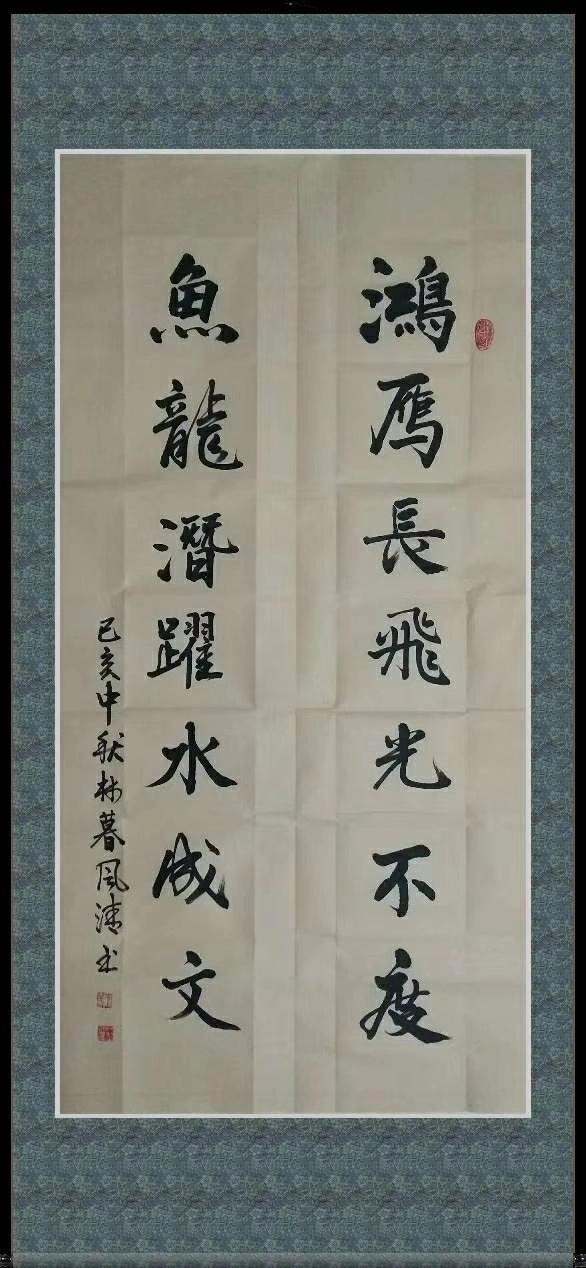 鴻雁長飛光不度
魚龍潛躍水成文
己亥中秋林暮風清书